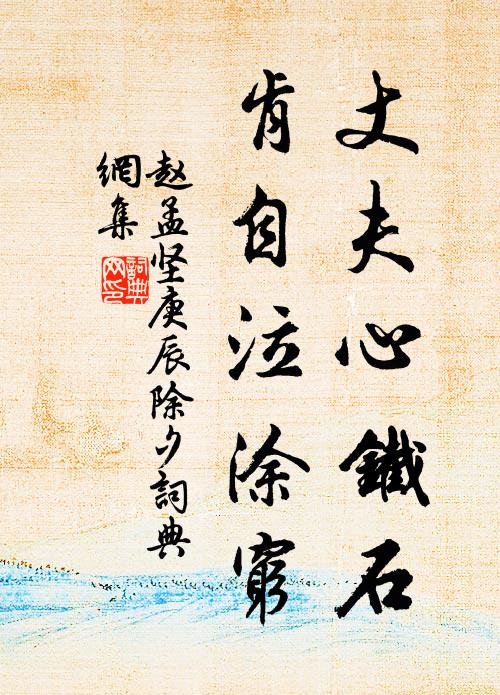 丈夫心鐵石
肯自泣涂窮
赵孟坚庚辰除夕詞典
網集
詞典網印